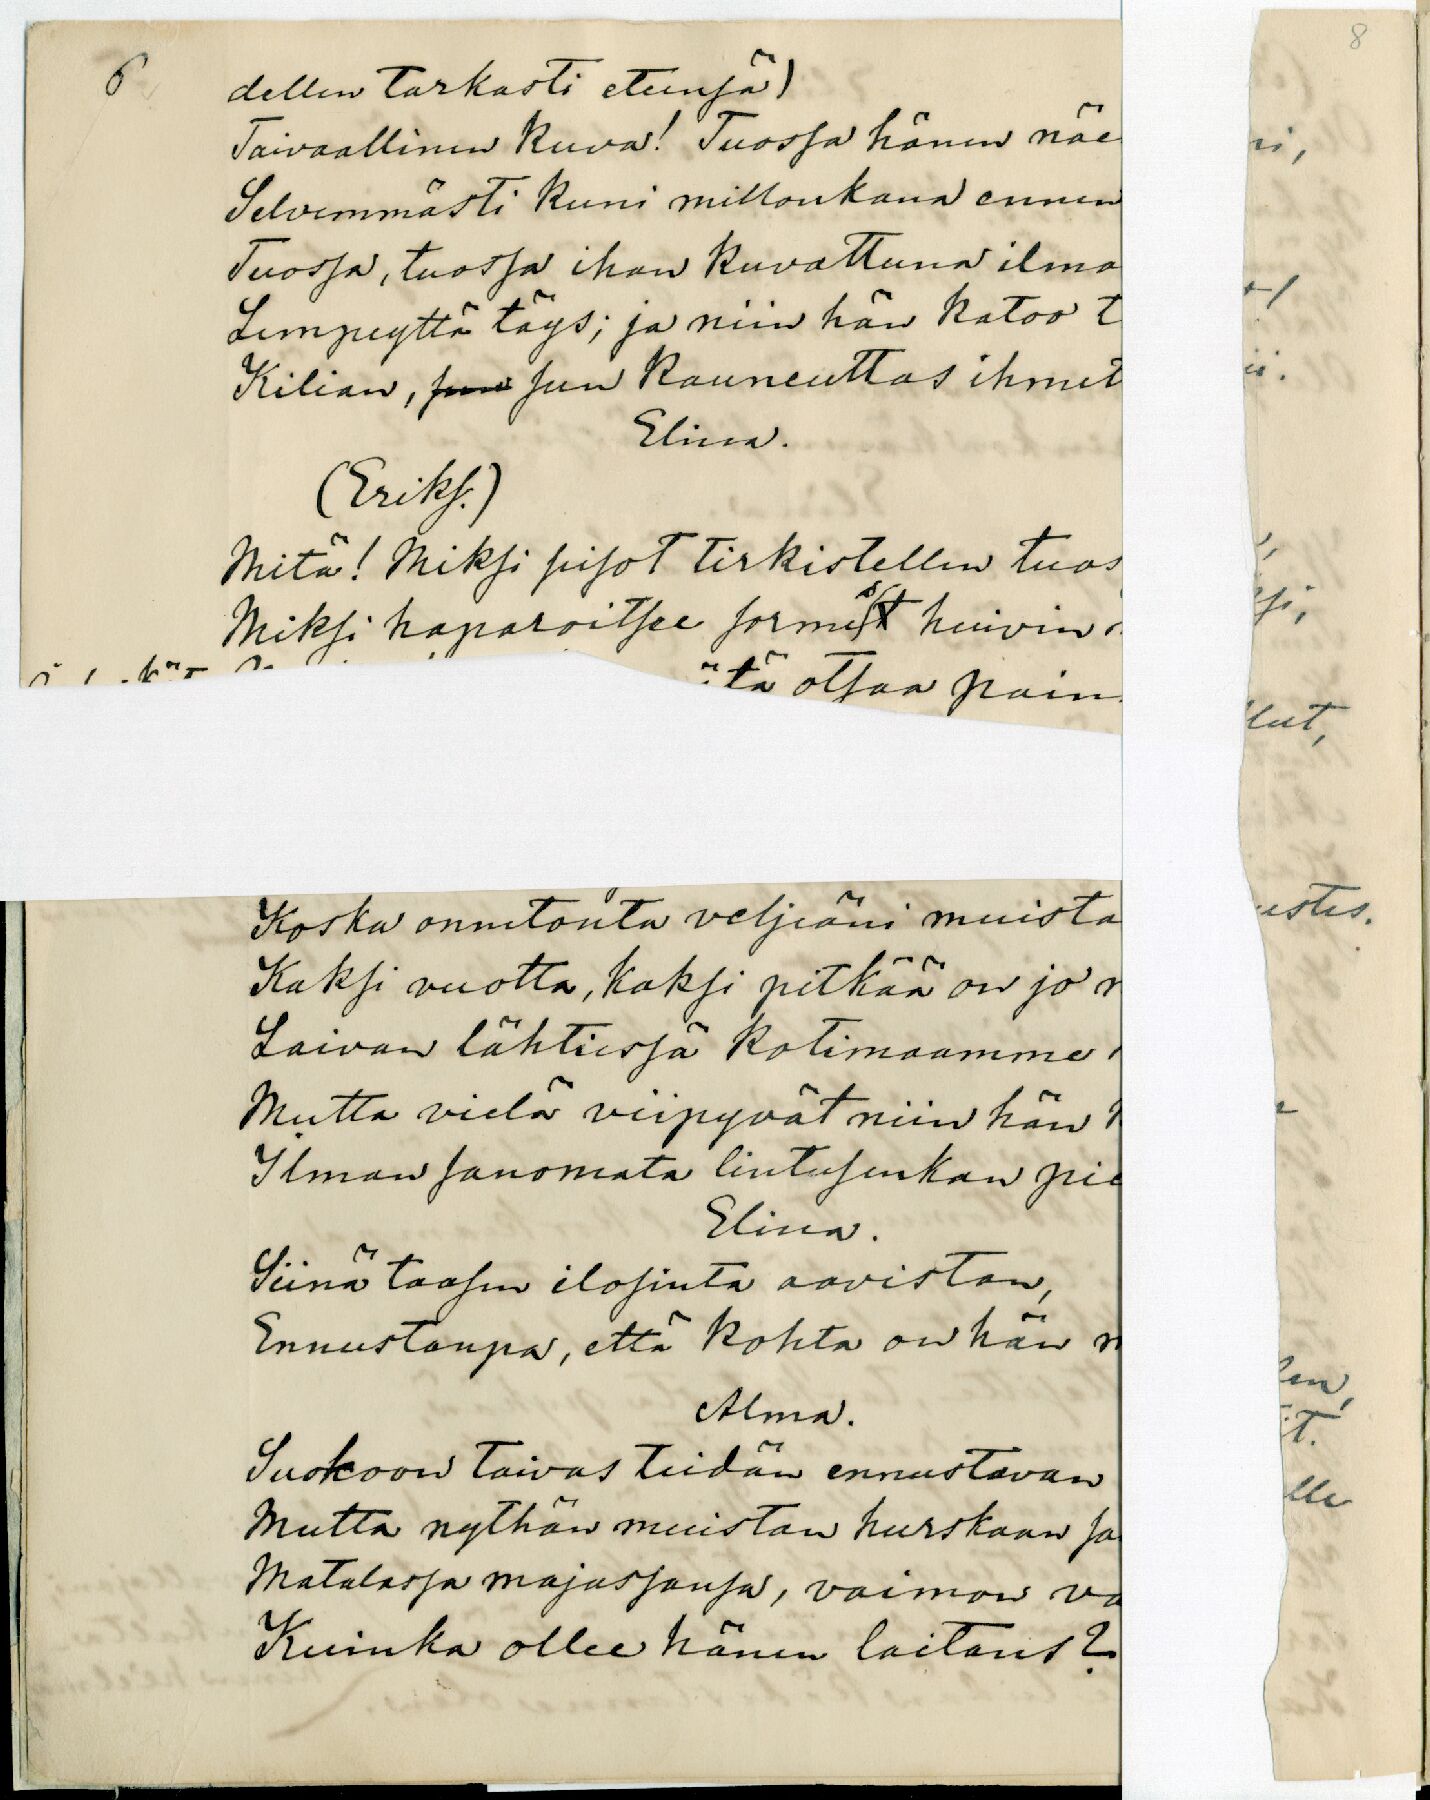 6
dellen tarkasti eteensä)
Taivaallinen kuva! Tuossa hänen näe
Selvemmästi kuni milloinkaan ennen
Tuossa, tuossa ihan kuvattuna ilma
Lempeyttä täys; ja niin hän katoo t
Kilian, sun sun kauneuttas ihmet
Elina.
(Eriks.)
Mitä! Miksi pisot tirkistellen tuos
Miksi haparoitsee sormes huivin
tä otsaa pain
Koska onnetonta veljeäni muista
Kaksi vuotta, kaksi pitkää on jo
Laivan lähtiessä kotimaamme
Mutta vielä viipyvät niin hän
Ilman sanomata lintusenkan pie
Elina.
Siinä taasen iloisinta aavistan,
Ennustanpa, että kohta on hän
Alma.
Suokoon taivas teidän ennustavan
Mutta nythän muistan hurskaan sa
Matalassa majassansa, vaimon va
Kuinka ollee hänen laitans?
8
ni,
ii.
si,
llut,
ustes.
len,
it.
lle